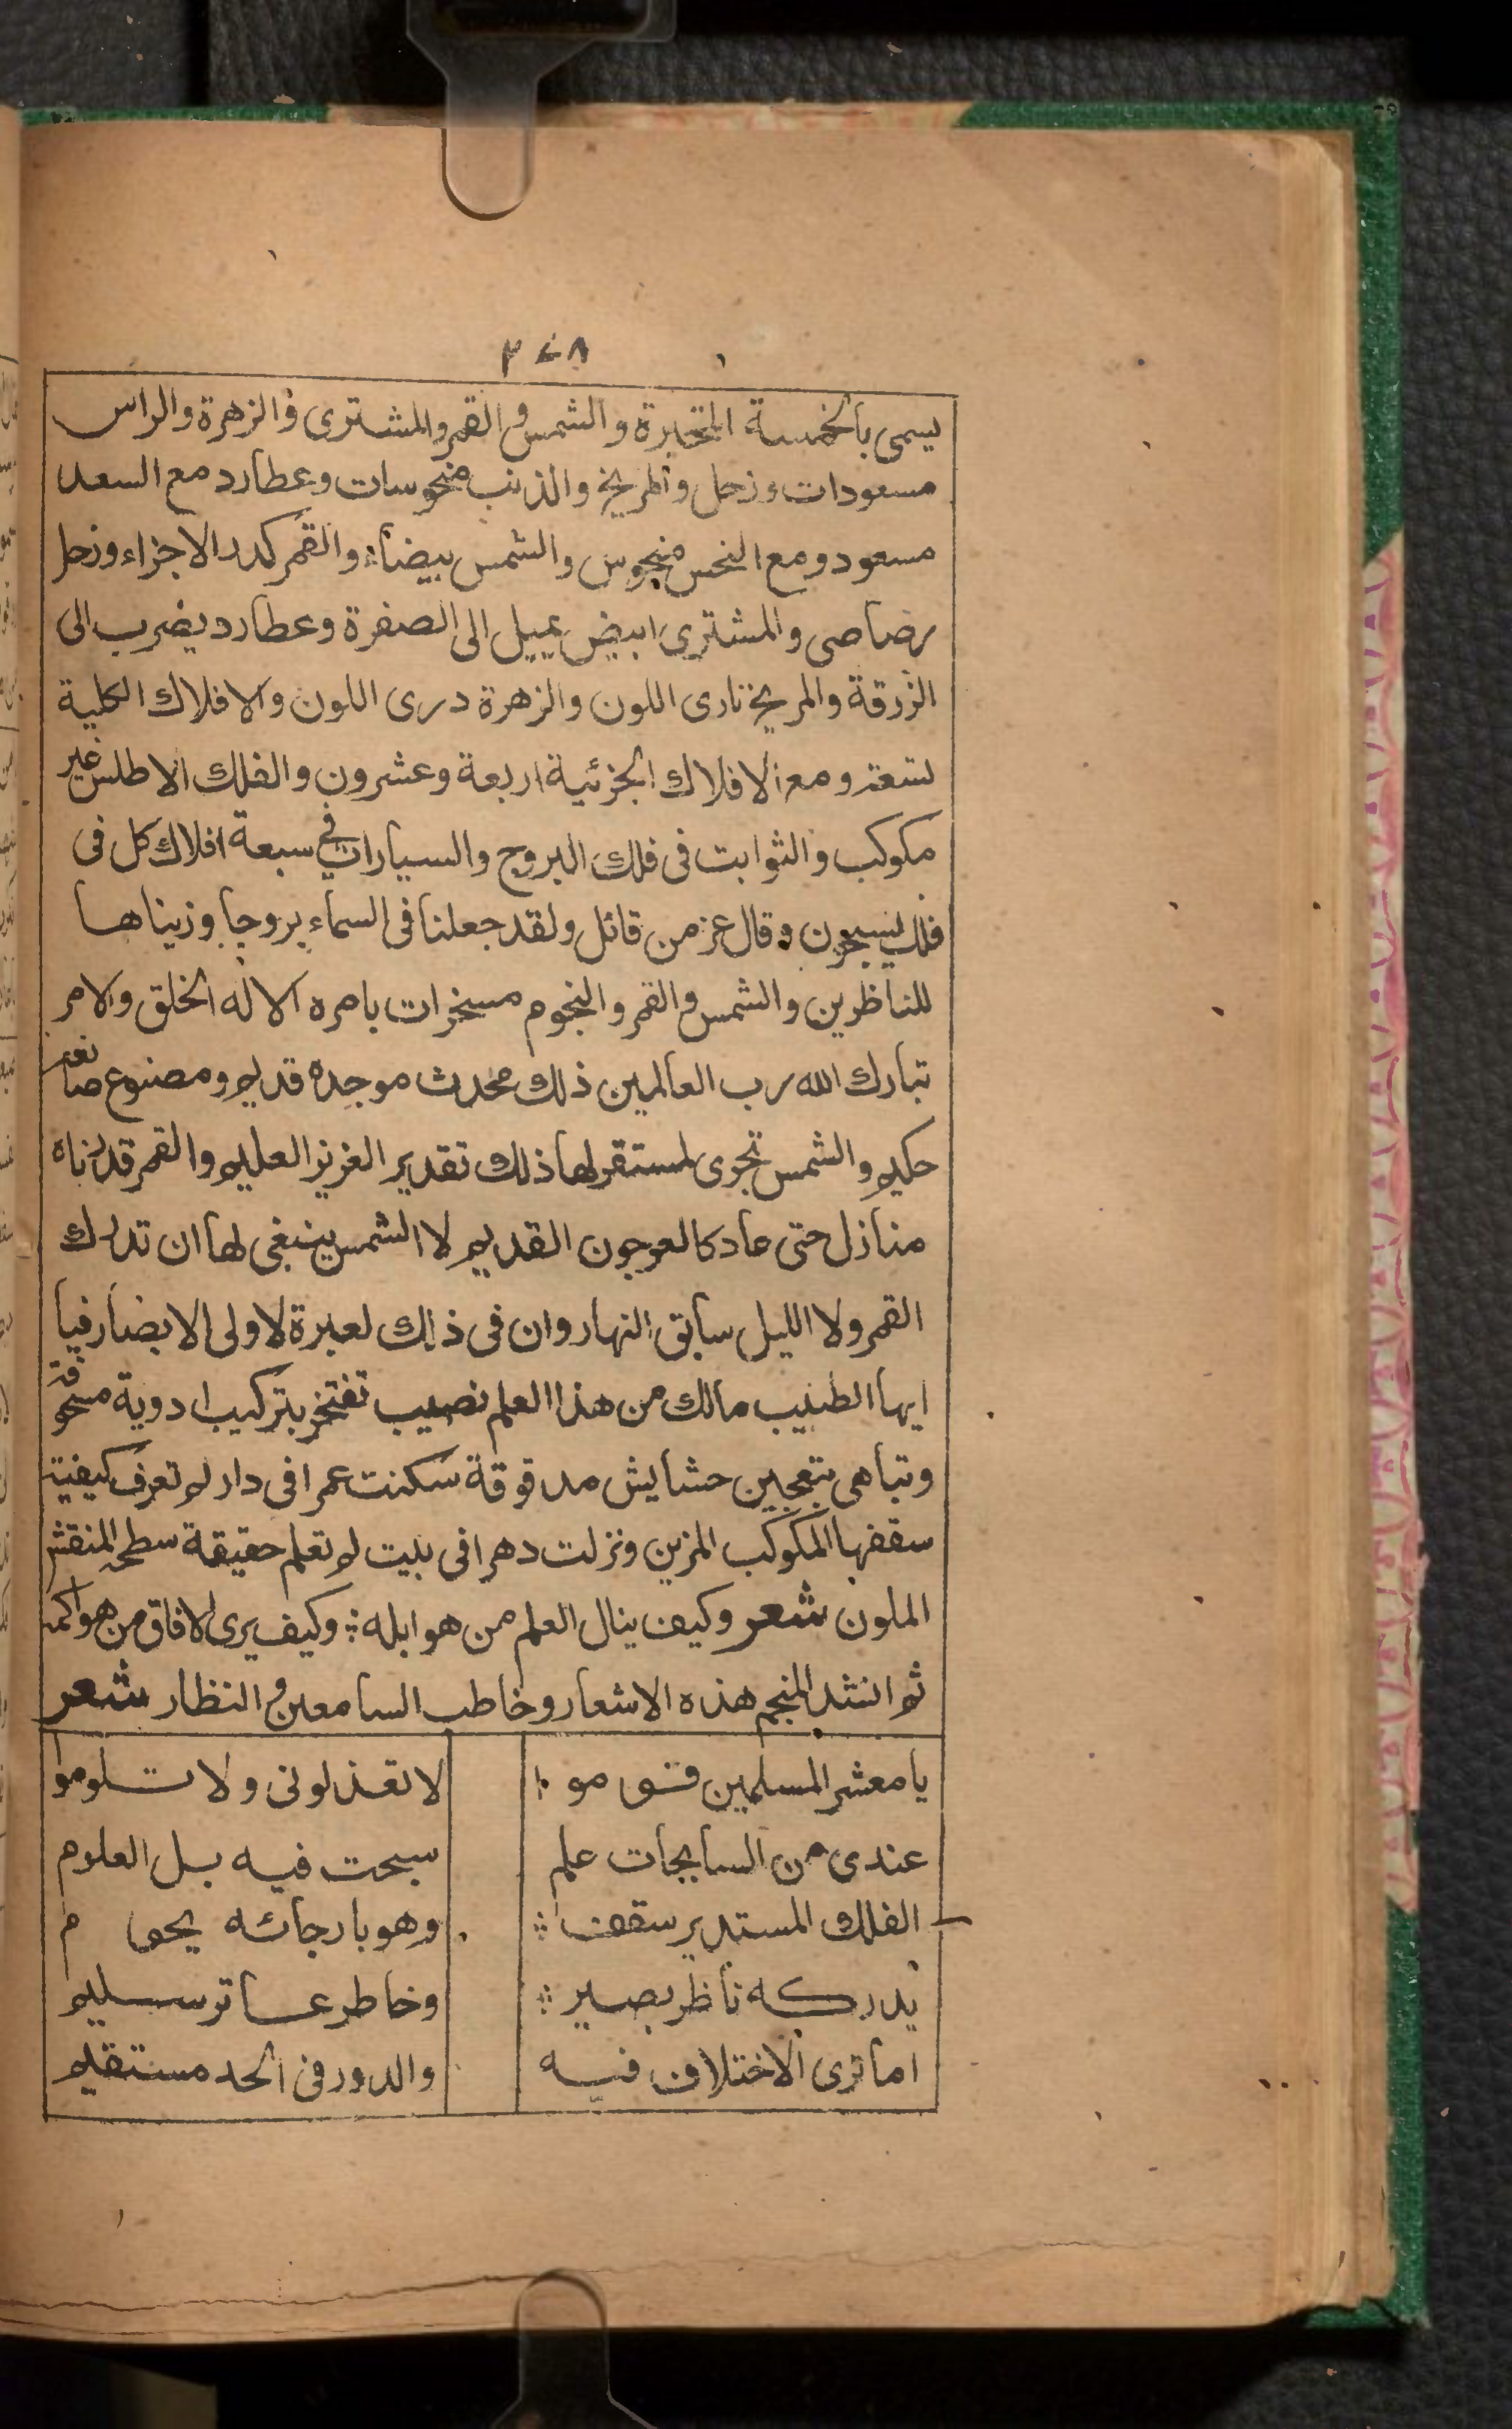 ٣٧٨
يسمى بالخمسة المتحيرة والشمس والقمر والمشترى والزهرة والراس
مسعودات وزحل والمريخ والذنب منحوسات وعطارد مع السعد
مسعود ومع النحس منحوس والشمس بيضاء والقمر كدر الاجزاء وزحل
رصاصى والمشترى ابيض يميل الى الصفرة وعطارد يضرب الى
الزرقة والمريخ نارى اللون والزهرة درى اللون والافلاك الكلية
تسعة ومع الافلاك الجزئية اربعة وعشرون والفلك الاطلس غير
مكوكب والثوابت فى فلك البروج والسيارات فى سبعة افلاك كل فى
فلك يسبحون وقال عز من قائل ولقد جعلنا فى السماء بروجا وزيناها
للناظرين والشمس والقمر والنجوم مسخرات بامره الا له الخلق والامر
تبارك الله رب العالمين ذلك محدث موجده قديم ومصنوع صانعه
حكيم والشمس تجرى لمستقر لها ذلك تقدير العزيز العليم والقمر قدرناه
منازل حتى عاد كالعرجون القديم لا الشمس ينبغى لها ان تدرك
القمر ولا الليل سابق النهار وان فى ذلك لعبرة لاولى الابصار فيا
ايها الطبيب مالك من هذا العلم نصيب تفتخر بتركيب ادوية مسحوقة
وتباهى بتعجين حشايش مدقوقة سكنت عمرا فى دار لم تعرف كيفية
سقفها المكوكب المزين ونزلت دهرا فى بيت لم تعلم حقيقة سطحه المنقش
الملون شعر وكيف ينال العلم من هو ابله ؞ وكيف يرى الافاق من هو اكمه
ثم انشد المنجم هذه الاشعار وخاطب السامعين والنظار شعر
يا معشر المسلمين قوموا لا تعذلونى ولا تلوموا
عندى من السابحات علم سبحت فيه بل العلوم
الفلك المستدير سقف ؞ وهو بارجائه يحوم
يدركه ناظر بصير ؞ وخاطر عاتر سليم
اما ترى الاختلاف فيه والدور فى الحد مستقيم